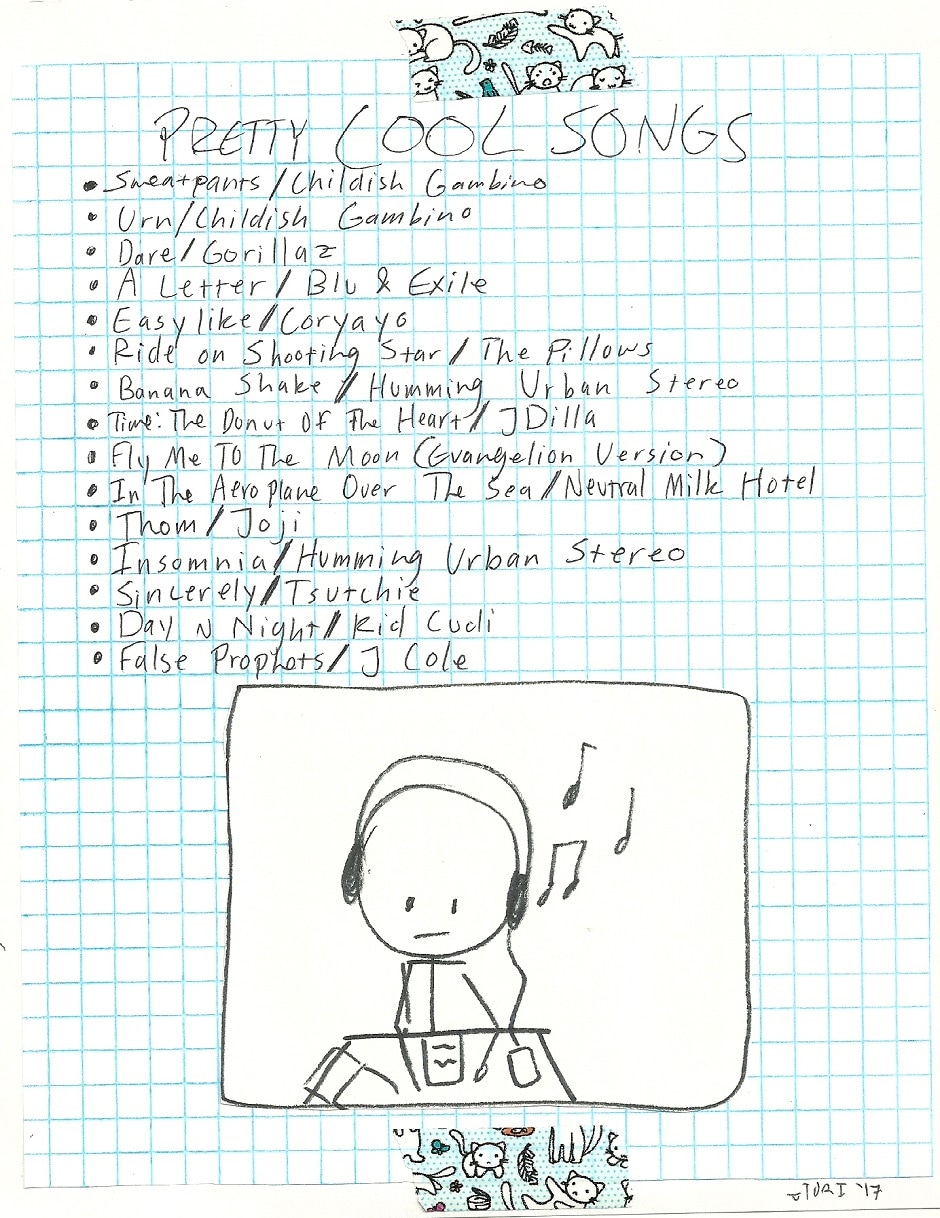 PRETTY COOL SONGS
• Sweatpants/Childish Gambino
• Urn/Childish Gambino
• Dare/Gorillaz
• A Letter/Blu & Exile
• Easylike/Coryayo
• Ride on Shooting Star/The Pillows
• Banana Shake/Humming Urban Stereo
• Time: The Donut Of The Heart/JDilla
• Fly Me To The Moon (Evangelion Version)
• In The Aeroplane Over The Sea/Neutral Milk Hotel
• Thom/Joji
• Insomnia/Humming Urban Stereo
• Sincerely/Tsutchie
• Day N Night/Kid Cudi
• False Prophets/J Cole
'17